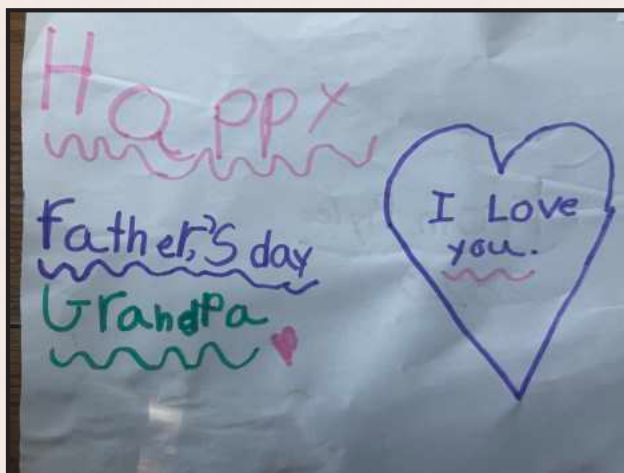 Happy
Father,'s day
Grandpa
I Love
you.